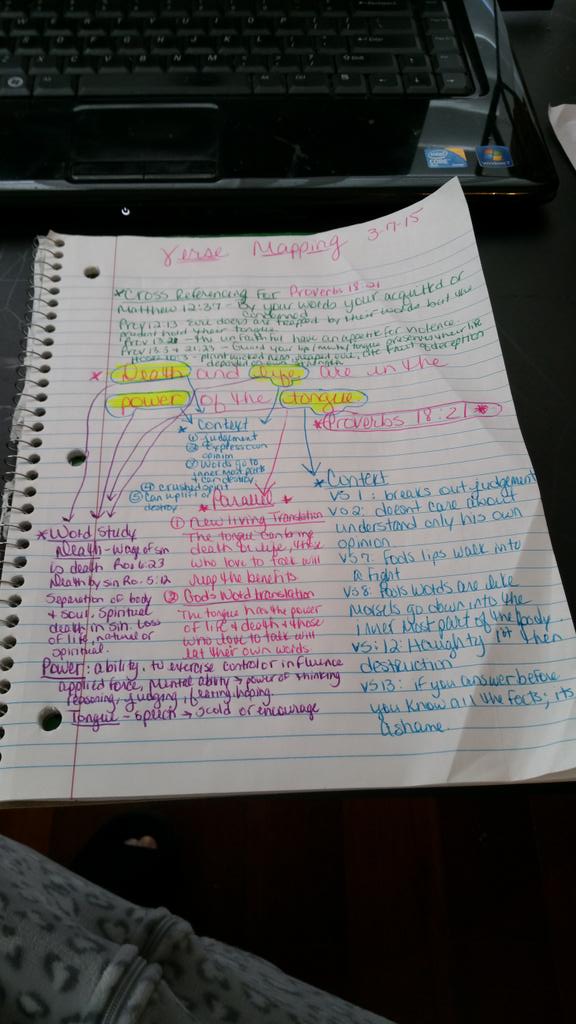 Verse Mapping 3-7-15
*Cross Referencing For Proverbs 18:21
Matthew 12:37 - By your words your acquitted or
condemned
Prov 12:13 Evil doers are trapped by their words but the
prudent hold their tongue.
Prov 13:2 - the unfaithful have an appetite for violence
Prov 13:3 + 21:23 - Guard your lip/mouth/tongue preserves their life
Hosea 10:13 - planted wicked ness, reaped evil, ate fruit of deception
depended on own strength
* Death and life are in the
power of the tongue
*Proverbs 18:21*
* Context
① judgement
② Express own
opinion
③ Words go to
inner most parts
+ can destroy
④ crushed spirit
⑤ Can uplift or
destroy
* Parallel *
① New Living Translation
The tongue can bring
death or life, those
who love to talk will
reap the benefits
② Gods Word translation
The tongue has the power
of life + death + those
who love to talk will
eat their own words
*Context
VS 1: breaks out judgement
VS 2: doesnt care about
understand only his own
opinion
VS 7: Fools lips walk into
a fight
VS 8: fools words are like
morsels go down into the
inner most part of the body
VS: 12: Haughty 1st then
destruction
VS 13: if you answer before
you know all the facts; its
ashame.
*Word Study
Death - Wage of sin
is death Ro. 6:23
Death by sin Ro. 5:12
Separation of body
+ soul. Spiritual
death in sin. Loss
of life, natural or
spiritual.
Power: ability, to exercise control or influence
applied force, Mental ability → power of thinking
reasoning, judging, fearing, hoping.
Tongue - speech → scold or encourage